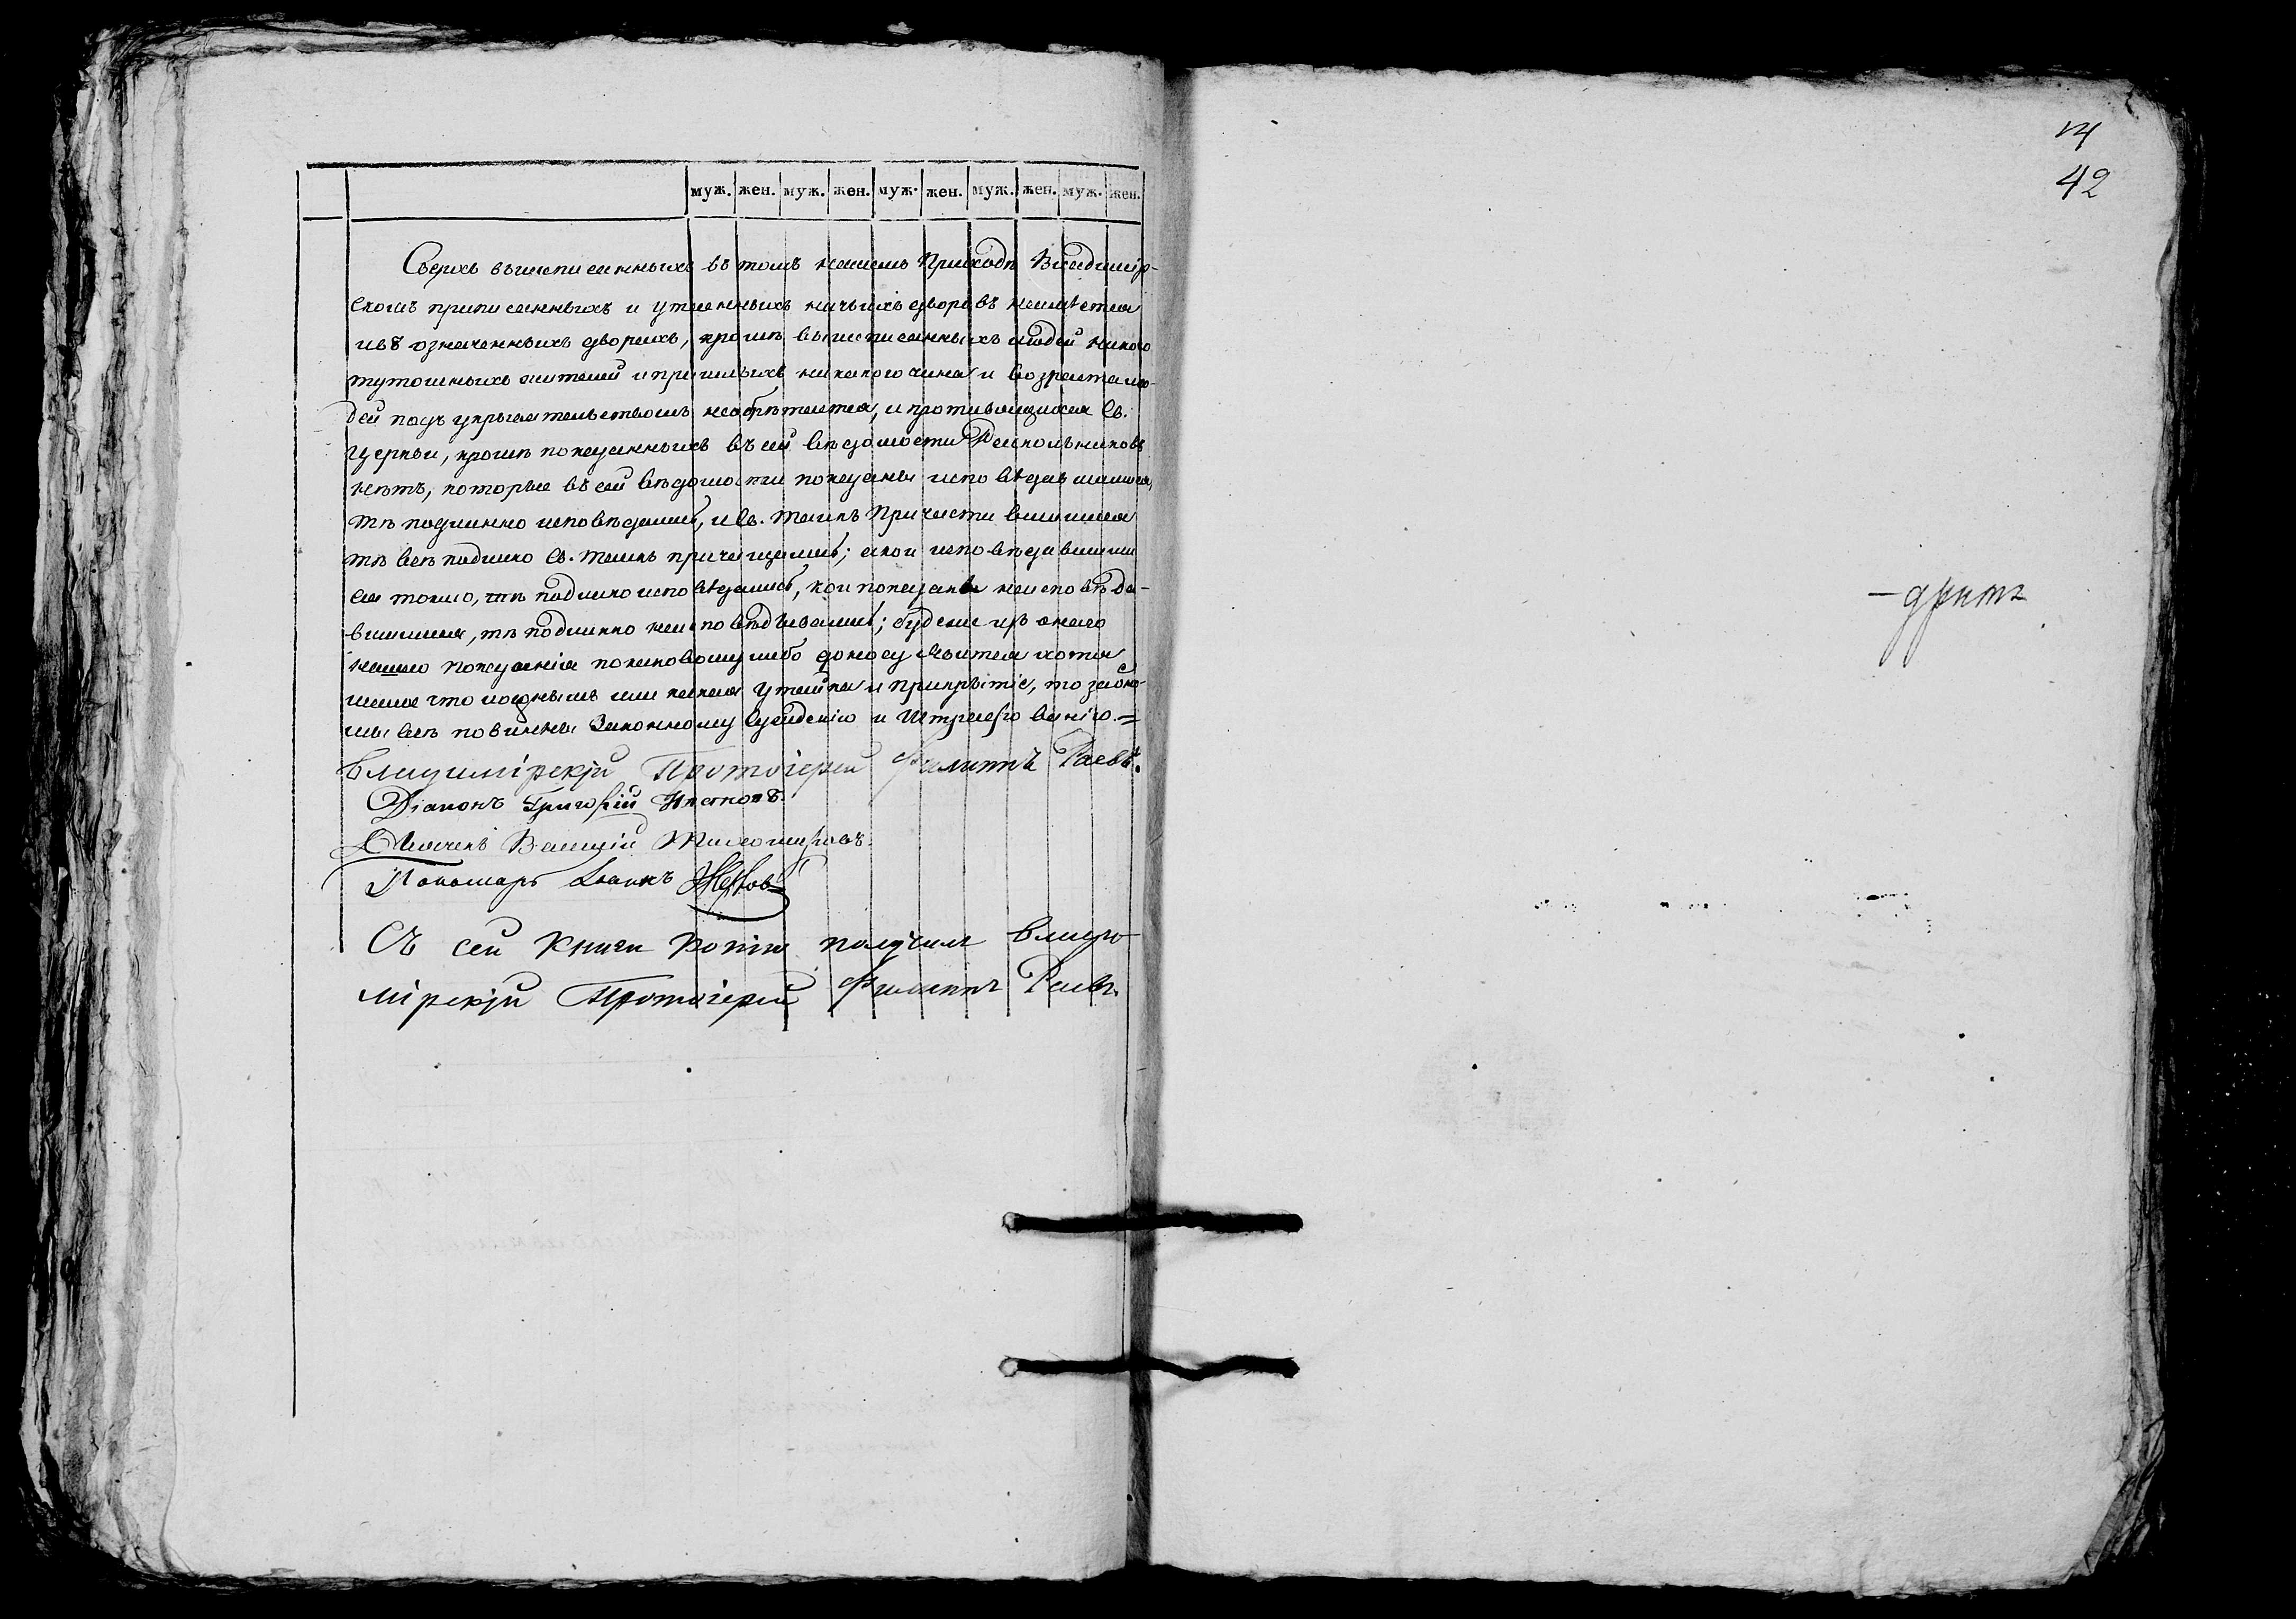 муж. жен. муж. жен. муж. жен. муж. жен. муж. жен.
Сверхъ вышеписанныхъ въ томъ нашемъ Приходѣ Владимір-
скомъ приписанныхъ и утаенныхъ ничьихъ дворовъ неимѣется
ивъ означенныхъ дворахъ, кромѣ вышеписанныхъ людей никого
тутошныхъ жителей и пришлыхъ никакого чина и возраста лю-
дей подъ укрывательствомъ необрѣтается, и противящихся Св.
Церкви, кромѣ показанныхъ въ сей вѣдомости Раскольниковъ
нѣтъ, которые въ сей вѣдомости показаны исповѣдавшимися,
тѣ подлинно исповѣдались, и Св. Таинъ Причастившимися
тѣ всѣ подлино Св. Таинъ причащались; а кои исповѣдавшими
ся токмо, тѣ подлино исповѣдались, кои показаны неисповѣда-
вшимися, тѣ подлинно неисповѣдывались; будеже изъ онаго
нашего показанія покаковому либо доносу явится хотя
малое что ложнымъ или какая утайка и прикрытіе, то за оное
мы всѣ повинны Законному Сужденію и Истязанію.=
Владимірскій Протоіерей Филиппъ Раевъ.
Діаконъ Григорій
Дьячекъ Василій Тихомировъ.
Пономарь Іоаннъ
Съ сей книги копію получилъ Влади-
мірскій Протоіерей Филиппъ Раевъ.
42